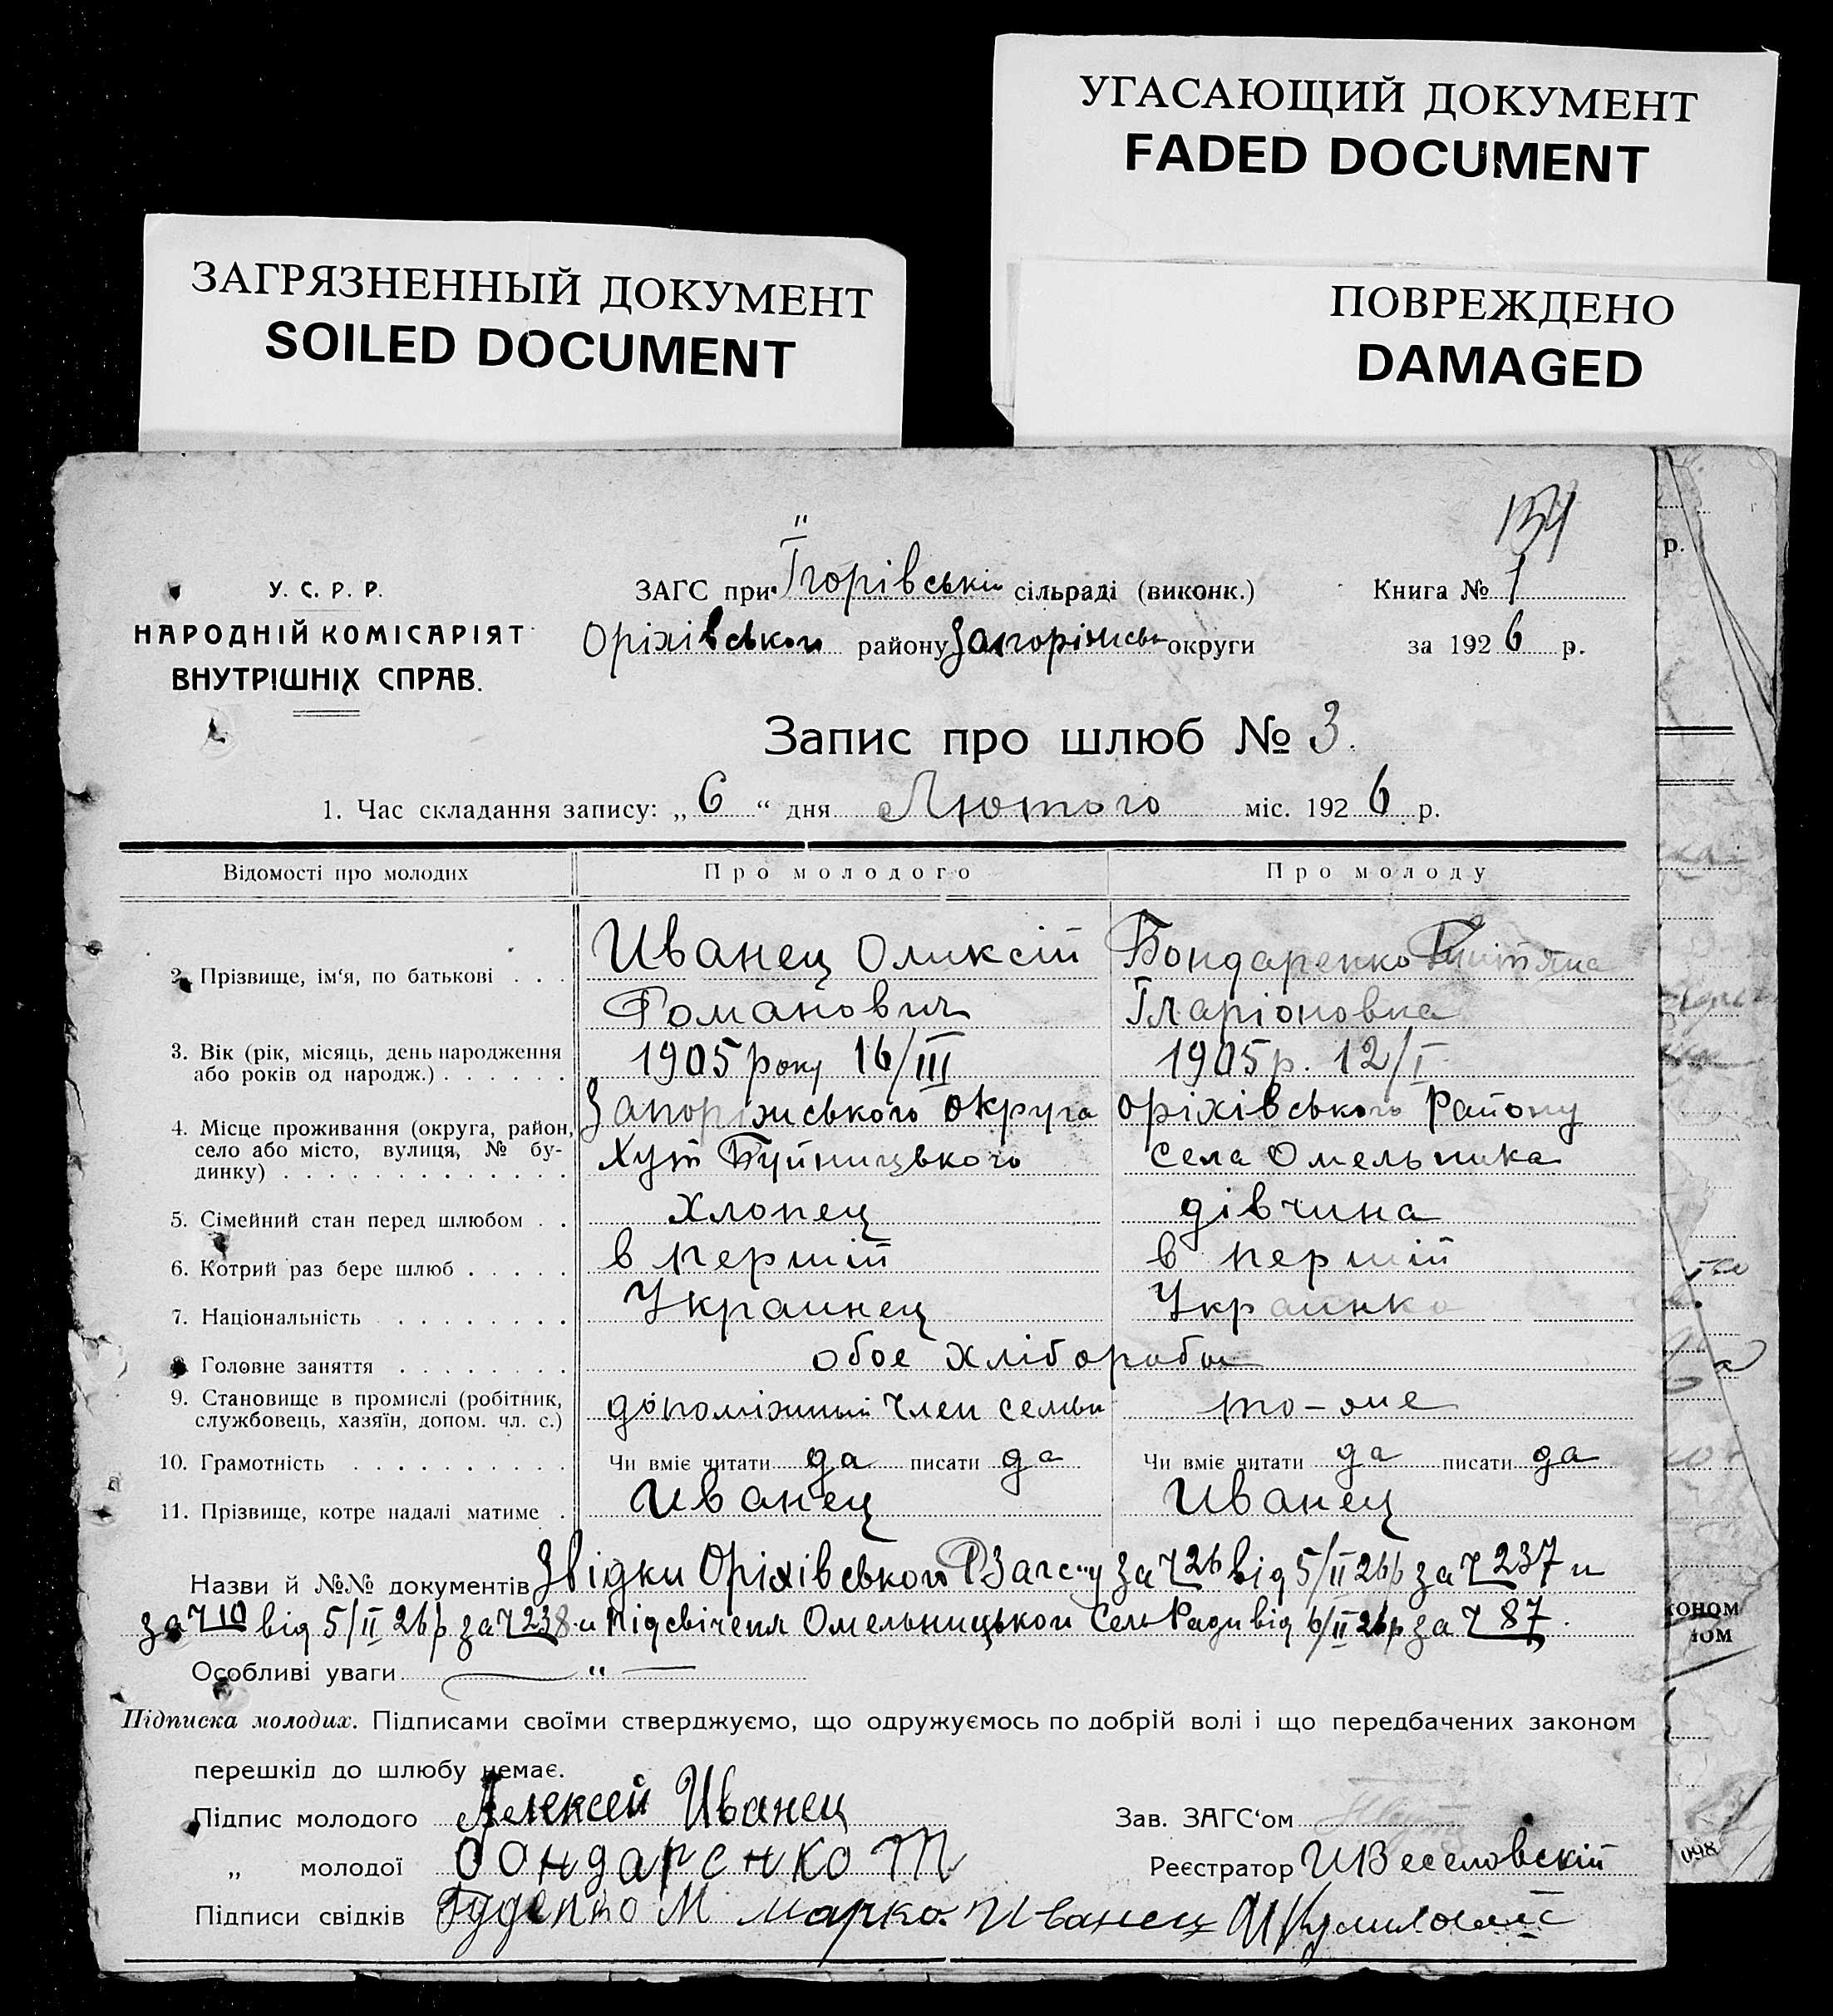 УГАСАЮЩИЙ ДОКУМЕНТ
FADED DOCUMENT
ЗАГРЯЗНЕННЫЙ ДОКУМЕНТ
SOILED DOCUMENT
ПОВРЕЖДЕНО
DAMAGED
У. С. Р. Р.
НАРОДНІЙ КОМІСАРІЯТ
ВНУТРІШНІХ СПРАВ.
ЗАГС при Ігорівські сільраді (виконк.)
Книга № 1
Оріхівського району Запоріжсь округи
за 1926 р.
р.
Запис про шлюб № 3.
1. Час складання запису: „6“ дня Лютого міс. 1926 р.
Відомості про молодих Про молодого Про молоду
2. Прізвище, ім‘я, по батькові Иванец Оликсій Бондаренко Титяна
Романович Іларіоновна
3. Вік (рік, місяць, день народження або років од народж.) 1905 року 16/III 1905 р. 12/I
4. Місце проживання (округа, район, село або місто, вулиця, № будинку) Запоріжського округа Оріхівського Району
Хут Буйницького села Омельника
5. Сімейний стан перед шлюбом хлопец дівчина
6. Котрий раз бере шлюб в перший в перший
7. Національність Украинец Украинка
8. Головне заняття обое хлібороби
9. Становище в промислі (робітник, службовець, хазяїн, допом. чл. с.) допоміжный член семьи то-же
10. Грамотність Чи вміє читати да писати да Чи вміє читати да писати да
11. Прізвище, котре надалі матиме Иванец Иванец
Назви й №№ документів Звідки Оріхівського РЗагсу за Ч 26 від 5/II 26 р за Ч 237 и
за Ч 10 від 5/II 26 р за Ч 238 и підсвіченя Омельницького Сель Ради від 6/II 26 р за Ч 87.
Особливі уваги — “ —
Підписка молодих. Підписами своїми стверджуємо, що одружуємось по добрій волі і що передбачених законом
перешкід до шлюбу немає.
Підпис молодого Алексей Иванец
Зав. ЗАГС‘ом
„ молодої Бондаренко Т
Реєстратор И Веселовскій
Підписи свідків М Марко Иванец
098